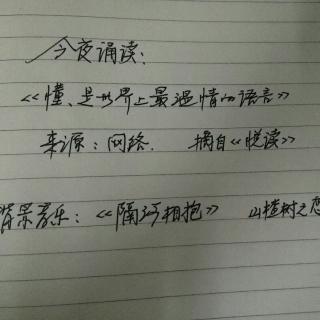 今夜诵读：
《懂、是世界上最温情的语言》
来源：网络. 摘自《悦读》
背景音乐：《隔河相抱》 山楂树之恋